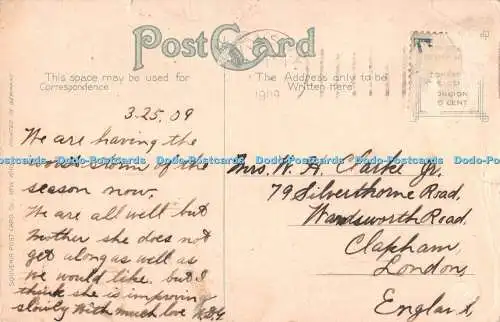 POST CARD
This space may be used for
Correspondence
The Address only to be
Written here
1909
DOMESTIC
FOREIGN
2 CENT
3-25.09
We are having the
worst storm of the
season now.
We are all well but
Mother she does not
get along as well as
we would like. but I
think she is improving
slowly With much love
Mrs. W. H. Clarke Jr.
79 Silverthorne Road,
Wandsworth Road,
Clapham,
London,
England
SOUVENIR POST CARD CO. NEW YORK
PRINTED IN GERMANY
Postcards Data Postcards Data Postcards Data Postcards Data Postcards Data Postcards Data